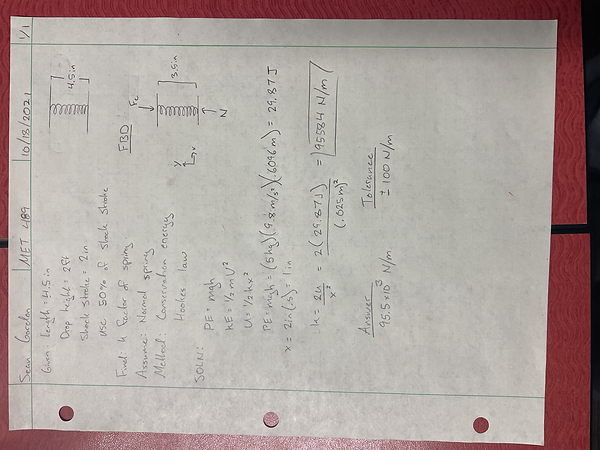 Sean Gordon MET 489 10/18/2021 1/1
Given: length = 4.5 in
Drop height = 2ft
Shock Stroke = 2in
use 50% of shock stroke
4.5in
Find: k factor of spring
Assume: Normal spring
Method: Conservation energy
Hookes law
FBD:
Fc
3.5in
Y
x
N
SOLN:
PE = mgh
KE = 1/2 m V²
U = 1/2 kx²
PE = mgh = (5kg)(9.8 m/s²)(.6096m) = 29.87J
x = 2in(.5) = 1in
k = 2u/x² = 2(29.87J)/(.025m)² = 95584 N/m
Answer
95.5x10³ N/m
Tolerance
± 100 N/m